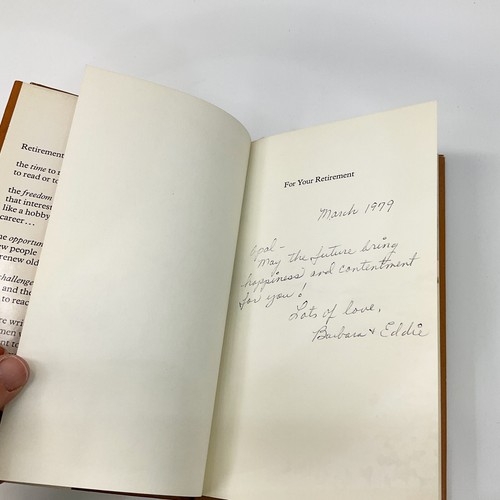 Retirement
the time to r
to read or to
the freedom
that interest
like a hobby
career...
he opportun
new people
renew old
challenge
and the
to reac
re writ
men w
nt to
For Your Retirement
March 1979
Opal-
May the future bring
happiness and contentment
for you!
Lots of love,
Barbara & Eddie